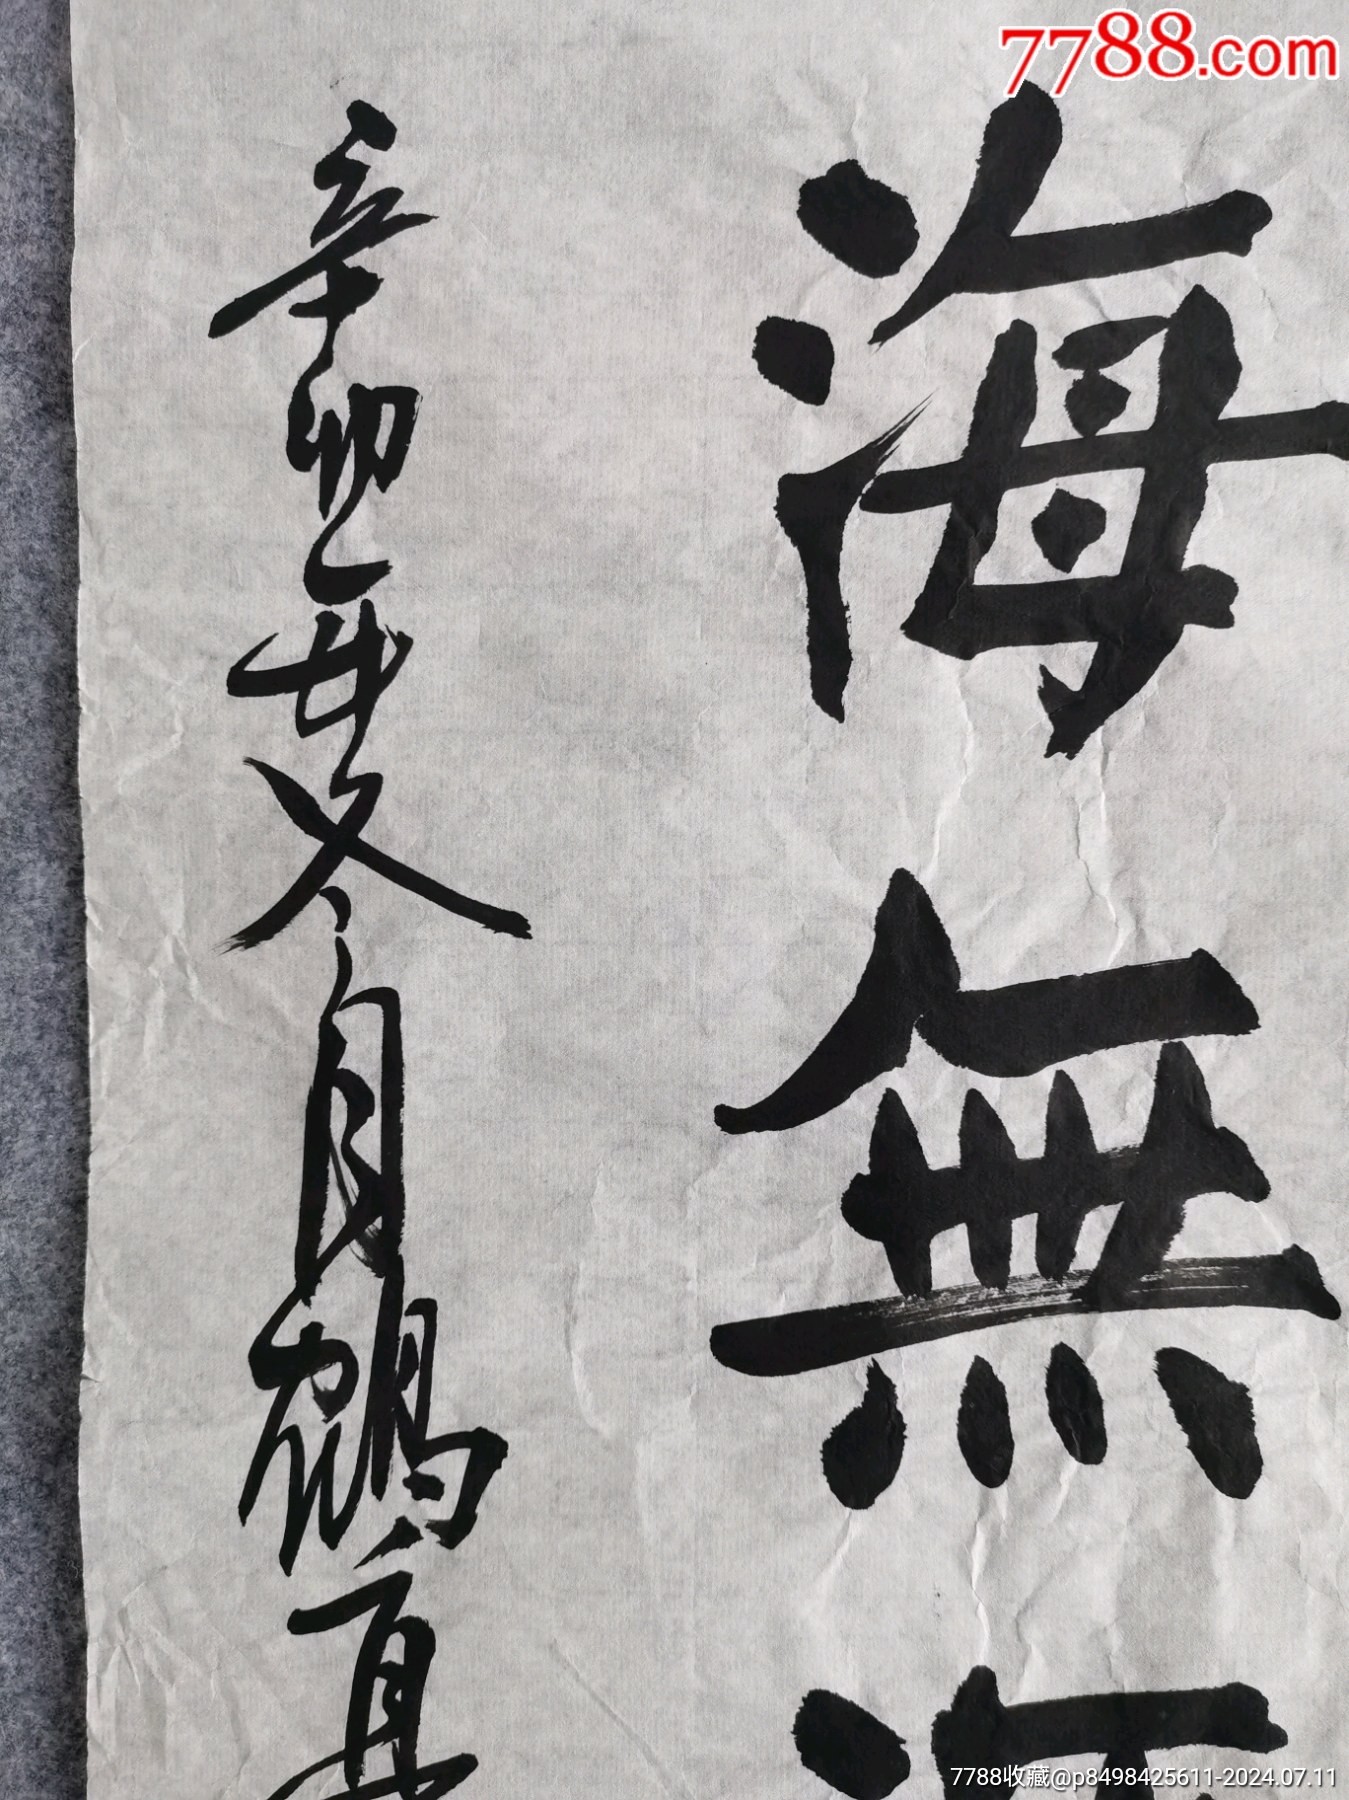 7788.com
海無涯
辛卯年冬月鹤直
7788收藏@p8498425611-2024.07.11